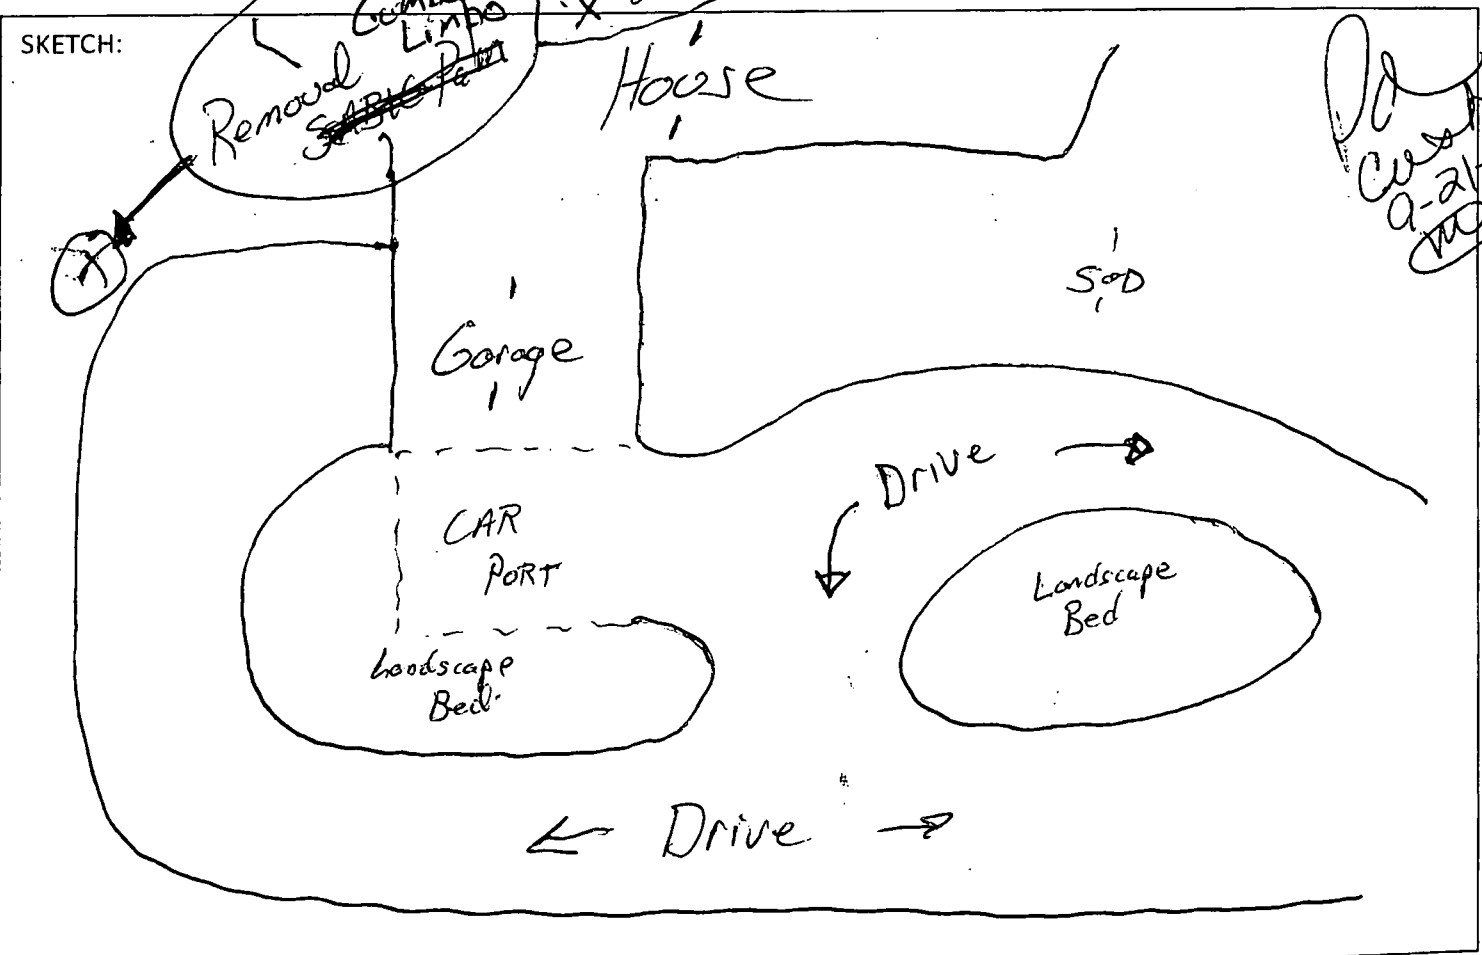 SKETCH:
Limbo
Removal
House
X
SOD
Garage
Drive
CAR
PORT
Landscape
Bed
Landscape
Bed
Drive